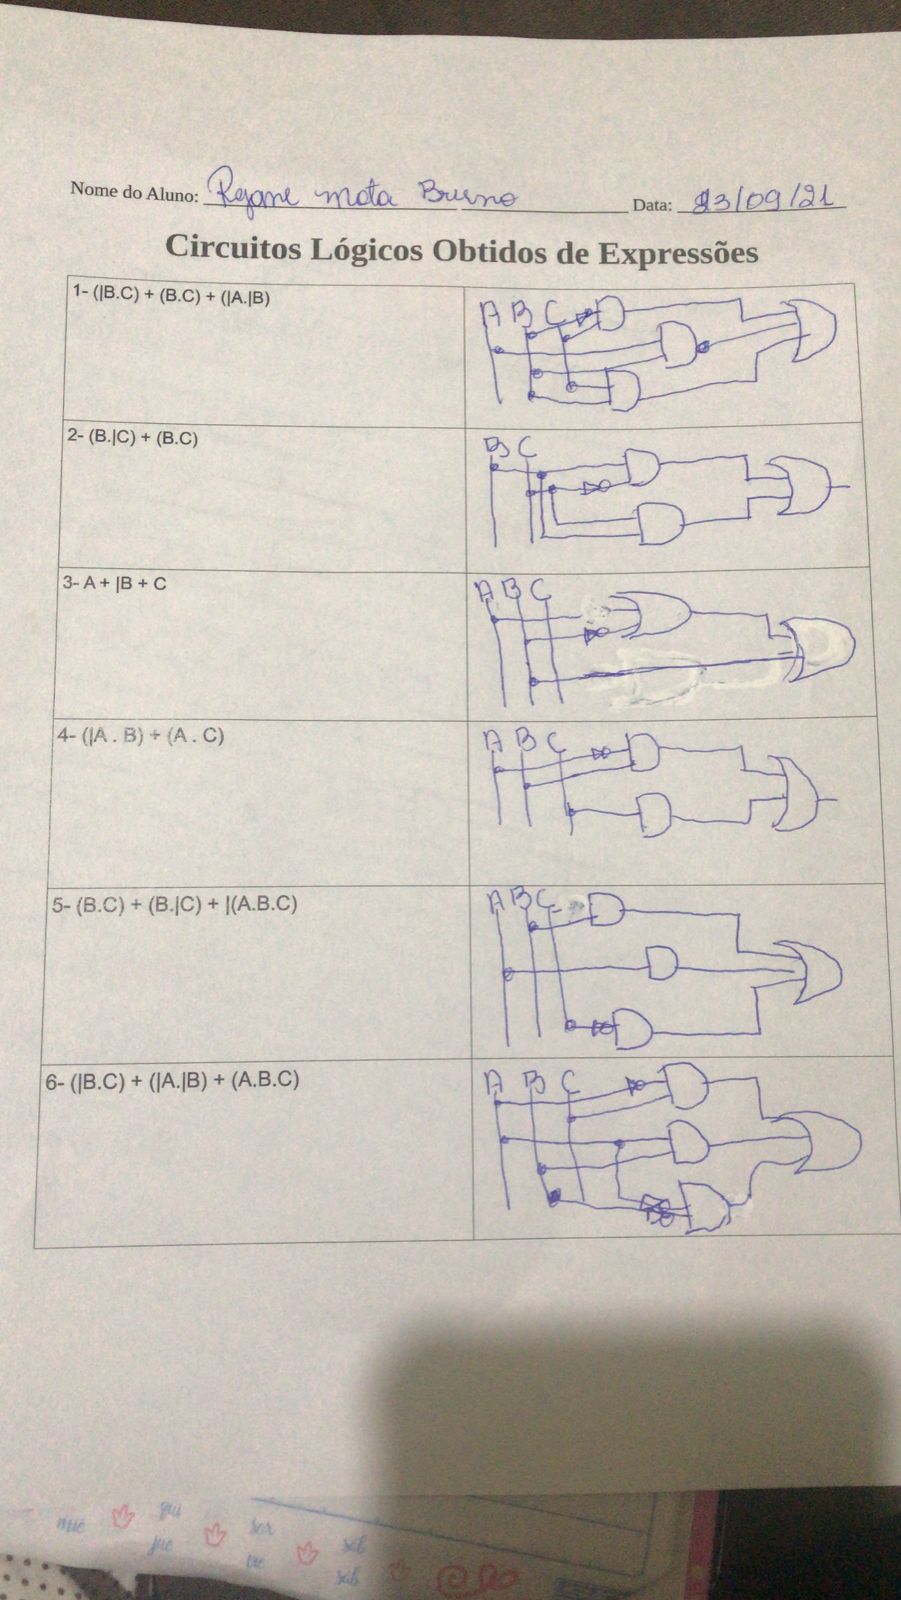 Nome do Aluno: Rejane mota Bueno Data: 23/09/21
Circuitos Lógicos Obtidos de Expressões
1- (|B.C) + (B.C) + (|A.|B)
A B C
2- (B.|C) + (B.C)
B C
3- A + |B + C
A B C
4- (|A . B) + (A . C)
A B C
5- (B.C) + (B.|C) + |(A.B.C)
A B C
6- (|B.C) + (|A.|B) + (A.B.C)
A B C